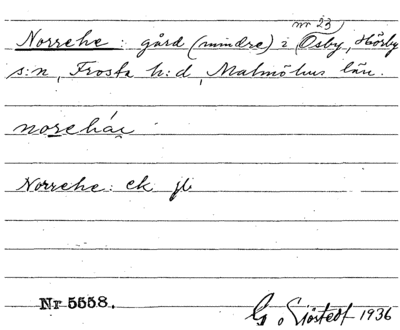 nr 23
Norrehe: gård (mindre) i Osby, Hörby
s:n, Frosta h:d, Malmöhus län.
Norrehe: ek. jb
Nr 5558.
G. Sjöstedt 1936